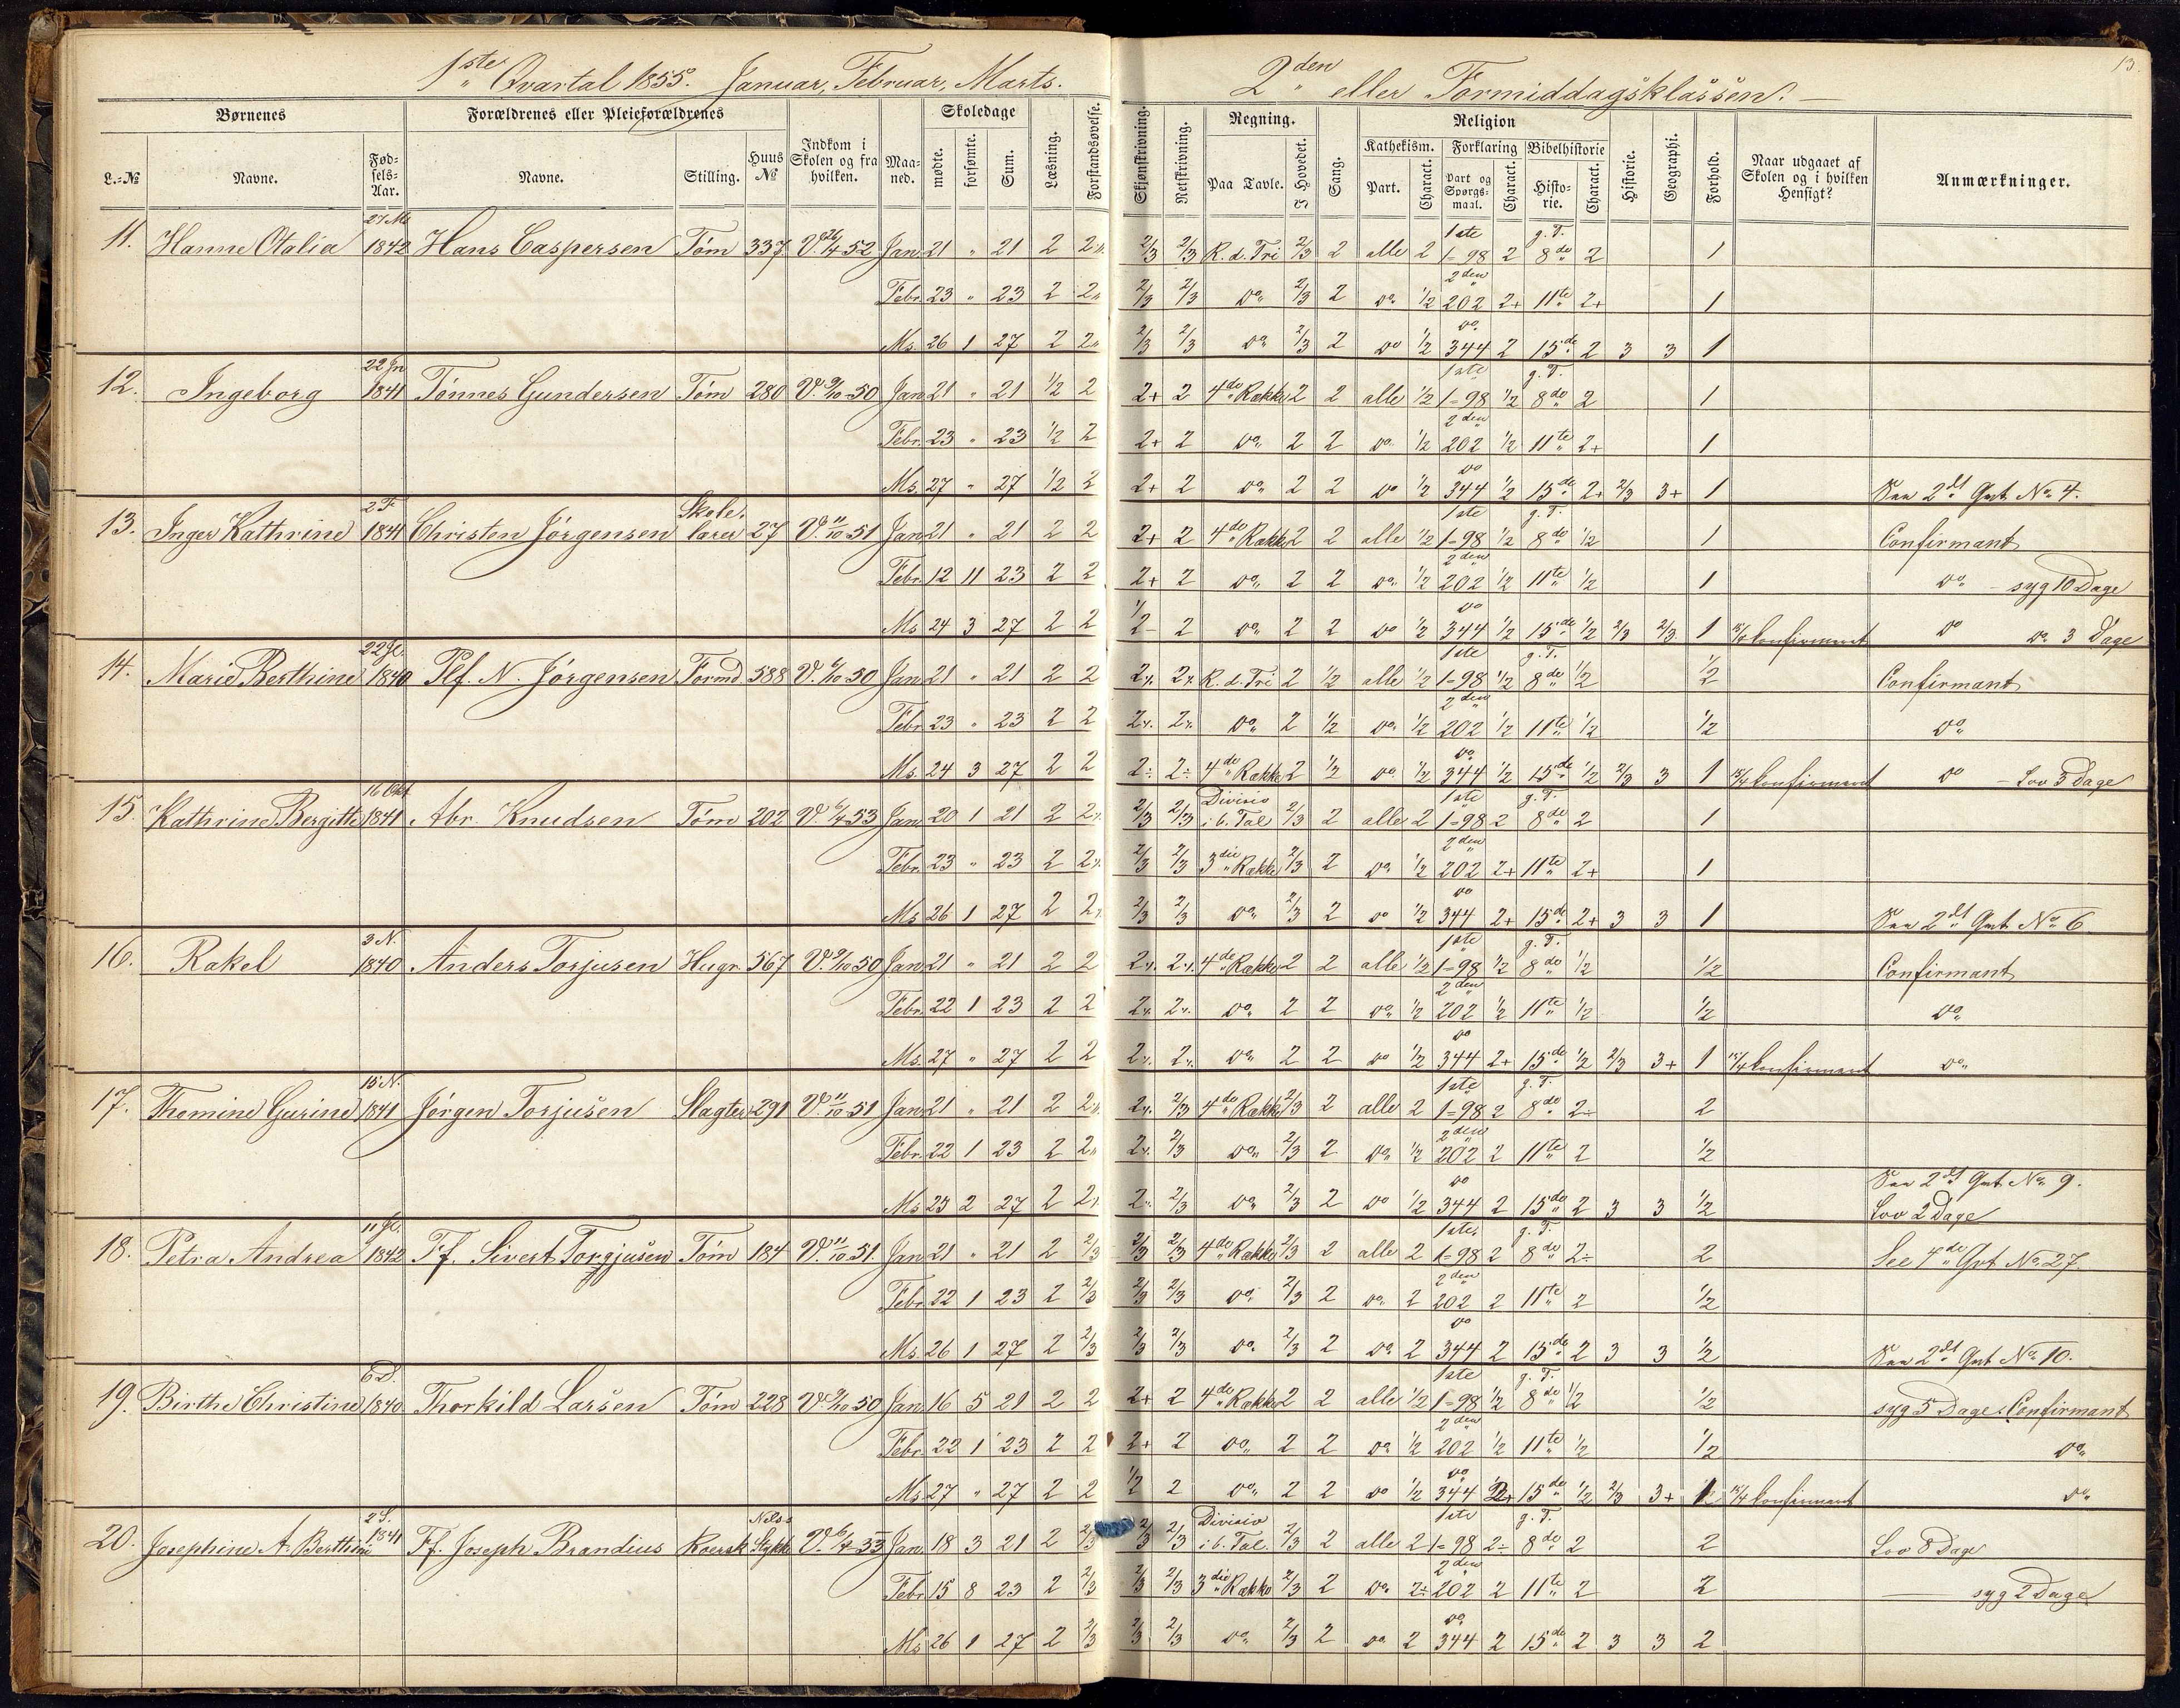 1ste Qvartal 1855. Januar, Februar, Marts. 2den eller Formiddagsklassen. 13.
Børnenes Forældrenes eller Pleieforældrenes Skoledage Regning. Religion
L.-No Navne. Fødsels-Aar. Navne. Stilling. Huus No Indkom i Skolen og fra hvilken. Maaned. mødte. forsømte. Sum. Læsning. Forstandsøvelse. Skjønskrivning. Retskrivning. Paa Tavle. I Hovedet. Sang. Kathekism. Part. Charact. Forklaring Part og Spørgsmaal. Charact. Bibelhistorie Historie. Charact. Historie. Geographi. Forhold. Naar udgaaet af Skolen og i hvilken Hensigt? Anmærkninger.
11. Hanne Otalia 1842 Hans Caspersen Tøm 337 V. 26/4 52 Jan 21 " 21 2 2 2/3 2/3 R. d. Tri 2/3 2 alle 2 1ste 1=98 2 g. T. 8de 2 1
Febr. 23 " 23 2 2 2/3 2/3 do 2/3 2 do 1/2 2den 202 2+ 11te 2+ 1
Ms. 26 1 27 2 2 2/3 2/3 do 2/3 2 do 1/2 do 344 2 15de 2 3 3 1
12. Ingeborg 1841 Tønnes Gundersen Tøm 280 V. 9/10 50 Jan 21 " 21 1/2 2 2+ 2 4de Række 2 2 alle 1/2 1ste 1=98 1/2 g. T. 8de 2 1
Febr. 23 " 23 1/2 2 2+ 2 do 2 2 do 1/2 2den 202 1/2 11te 2+ 1
Ms. 27 " 27 1/2 2 2+ 2 do 2 2 do 1/2 do 344 1/2 15de 2+ 2/3 3+ 1 2dt Qvt No 4.
13. Inger Kathrine 2 F 1841 Christen Jørgensen Skolelærer 27 V. 11/10 51 Jan 21 " 21 2 2 2+ 2 4de Række 2 2 alle 1/2 1ste 1=98 1/2 g. T. 8de 1/2 1 Confirmant
Febr. 12 11 23 2 2 2+ 2 do 2 2 do 1/2 2den 202 1/2 11te 1/2 1 do - syg 10 Dage
Ms. 24 3 27 2 2 1/2- 2 do 2 2 do 1/2 do 344 1/2 15de 1/2 2/3 2/3 1 15/4 Confirmant do do 3 Dage
14. Marie Berthine 1840 Plf. N. Jørgensen Formd 588 V. 9/10 50 Jan 21 " 21 2 2 2÷ 2÷ R. d. Tri 2 1/2 alle 1/2 1ste 1=98 1/2 g. T. 8de 1/2 1/2 Confirmant
Febr. 23 " 23 2 2 2÷ 2÷ do 2 1/2 do 1/2 2den 202 1/2 11te 1/2 1/2 do
Ms. 24 3 27 2 2 2÷ 2÷ 4de Række 2 1/2 do 1/2 do 344 1/2 15de 1/2 2/3 3 1 15/4 Confirmant do - Lov 3 Dage
15. Kathrine Bergitte 16 Okt 1841 Abr. Knudsen Tøm 202 V. 6/4 53 Jan 20 1 21 2 2÷ 2/3 2/3 Divisio i b. Tal 2/3 2 alle 2 1ste 1=98 2 g. T. 8de 2 1
Febr. 23 " 23 2 2÷ 2/3 2/3 3die Række 2/3 2 do 1/2 2den 202 2+ 11te 2+ 1
Ms. 26 1 27 2 2÷ 2/3 2/3 do 2/3 2 do 1/2 do 344 2+ 15de 2+ 3 3 1 2dt Qvt No 6
16. Rakel 3 N. 1840 Anders Torjusen Hugr. 567 V. 9/10 50 Jan 21 " 21 2 2 2÷ 2÷ 4de Række 2 2 alle 1/2 1ste 1=98 1/2 g. T. 8de 1/2 1/2 Confirmant
Febr. 22 1 23 2 2 2÷ 2÷ do 2 2 do 1/2 2den 202 1/2 11te 1/2 1/2 do
Ms. 27 " 27 2 2 2÷ 2÷ do 2 2 do 1/2 do 344 2+ 15de 1/2 2/3 3+ 1 15/4 Confirmant do
17. Themine Gurine 15 N. 1841 Jørgen Torjusen Slagter 291 V. 11/10 51 Jan 21 " 21 2 2÷ 2÷ 2/3 4de Række 2/3 2 alle 2 1ste 1=98 2 g. T. 8de 2÷ 2
Febr. 22 1 23 2 2÷ 2÷ 2/3 do 2/3 2 do 1/2 2den 202 2 11te 2 1/2
Ms. 25 2 27 2 2÷ 2÷ 2/3 do 2/3 2 do 1/2 do 344 2 15de 2 3 3 1/2 2dt Qvt No 9. Lov 2 Dage
18. Petra Andrea 1842 Ff. Sivert Torgjusen Tøm 184 V. 11/10 51. Jan 21 " 21 2 2/3 2/3 2/3 4de Række 2/3 2 alle 2 1ste 1=98 2 g. T. 8de 2÷ 2 See 4de Qvt No 27.
Febr. 22 1 23 2 2/3 2/3 2/3 do 2/3 2 do 2 2den 202 2 11te 2 1/2
Ms. 26 1 27 2 2/3 2/3 2/3 do 2/3 2 do 2 do 344 2 15de 2 3 3 1/2 2dt Qvt No 10.
19. Birthe Christine 6 D. 1840 Thorkild Larsen Tøm 228 V. 9/10 50 Jan 16 5 21 2 2 2+ 2 4de Række 2 2 alle 1/2 1ste 1=98 1/2 g. T. 8de 1/2 1/2 syg 5 Dage. Confirmant
Febr. 22 1 23 2 2 2+ 2 do 2 2 do 1/2 2den 202 1/2 11te 1/2 1/2 do
Ms. 27 " 27 2 2 1/2 2 do 2 2 do 1/2 do 344 2+ 15de 1/2 2/3 3+ 1 15/4 Confirmant do
20. Josephine A. Berthine 2 S. 1841 Ff. Joseph Brandius Stykke V. Jan 18 3 21 2 2/3 2/3 2/3 Divisio i b. Tal. 2/3 2 alle 2 1ste 1=98 2÷ g. T. 8de 2 2 Lov 8 Dage
Febr. 15 8 23 2 2/3 2/3 2/3 3die Række 2/3 2 do 2÷ 2den 202 2 11te 2 2 syg 2 Dage
Ms. 26 1 27 2 2/3 2/3 2/3 do 2/3 2 do 2 do 344 2 15de 2 3 3 2